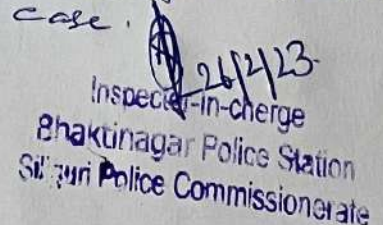 case.
26/2/23
Inspector-in-cherge
Bhaktinagar Police Station
Siliguri Police Commissionerate